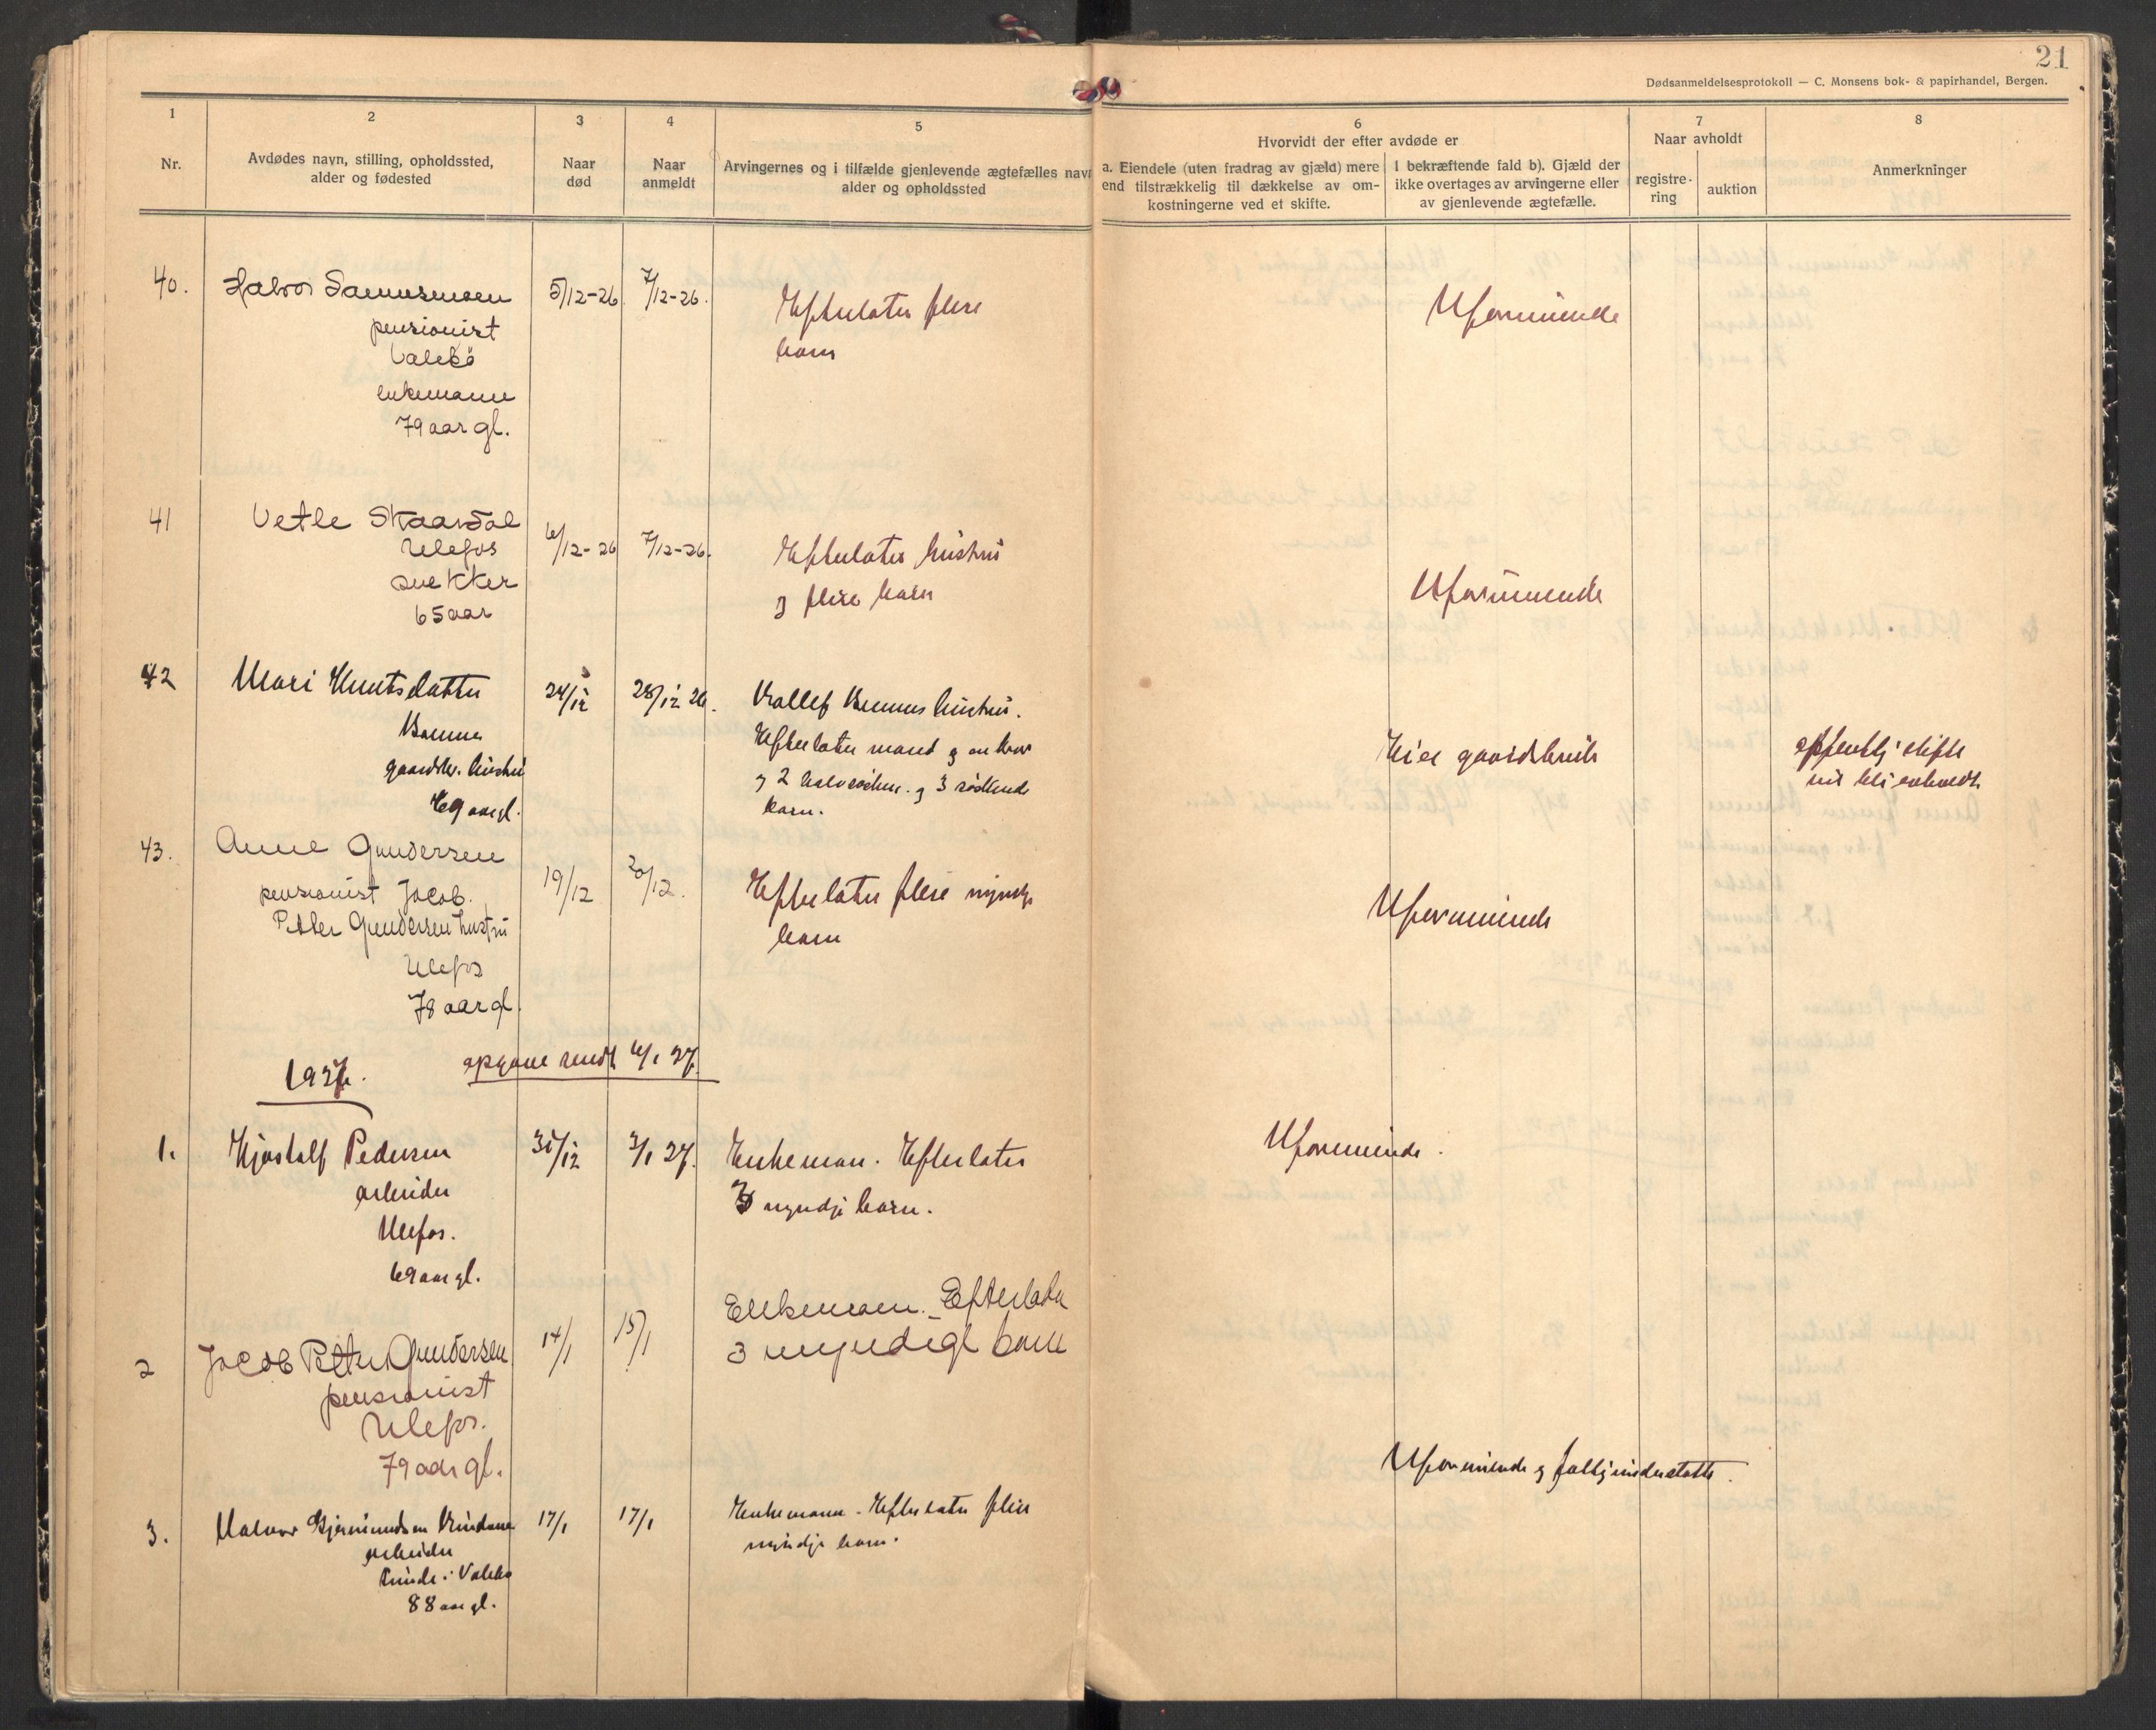 21
Dødsanmeldelsesprotokoll — C. Monsens bok- & papirhandel, Bergen.
1
Nr.
2
Avdødes navn, stilling, opholdssted,
alder og fødested
3
Naar
død
4
Naar
anmeldt
5
Arvingernes og i tilfælde gjenlevende ægtefælles navn
alder og opholdssted
6
Hvorvidt der efter avdøde er
a. Eiendele (uten fradrag av gjæld) mere
end tilstrækkelig til dækkelse av om-
kostningerne ved et skifte.
I bekræftende fald b). Gjæld der
ikke overtages av arvingerne eller
av gjenlevende ægtefælle.
7
Naar avholdt
registre-
ring
auktion
8
Anmerkninger
40.
Halvor Samuelsen
pensionist
Valebø
enkemann
79 aar gl.
5/12-26
7/12-26.
Efterlater flere
barn
Uformuende
41
Vetle Skaardal
Ulefos
snekker
65 aar
6/12-26
7/12-26.
Efterlater hustru
og flere barn
Uformuende
42
Mari Knutsdatter
gaardbr. hustru
69 aar gl.
24/12
28/12 26.
hustru.
Efterlater mand og en bror
og 2 halvsøsken og 3 søskende
barn.
Eier gaardsbruk
offentlig skifte
vil bli avholdt
43.
Anne Gundersen
pensionist Jacob
Petter Gundersens hustru
Ulefos
78 aar gl.
19/12
20/12.
Efterlater flere myndige
barn
Uformuende
1927.
opgave sendt 4/1 27
1.
Kjøstolf Pedersen
arbeider
Ulefos.
69 aar gl.
31/12
3/1 27.
Enkeman. Efterlater
3 myndige barn.
Uformuende.
2
Jacob Petter Gundersen
pensionist
Ulefos.
79 aar gl.
14/1
15/1
Enkemann. Efterlater
3 myndige barn
3.
Halvor Gjermundsen
arbeider
i Valebø
88 aar gl.
17/1
17/1
Enkemann - Efterlater flere
myndige barn.
Uformuende og fattigunderstøtte.